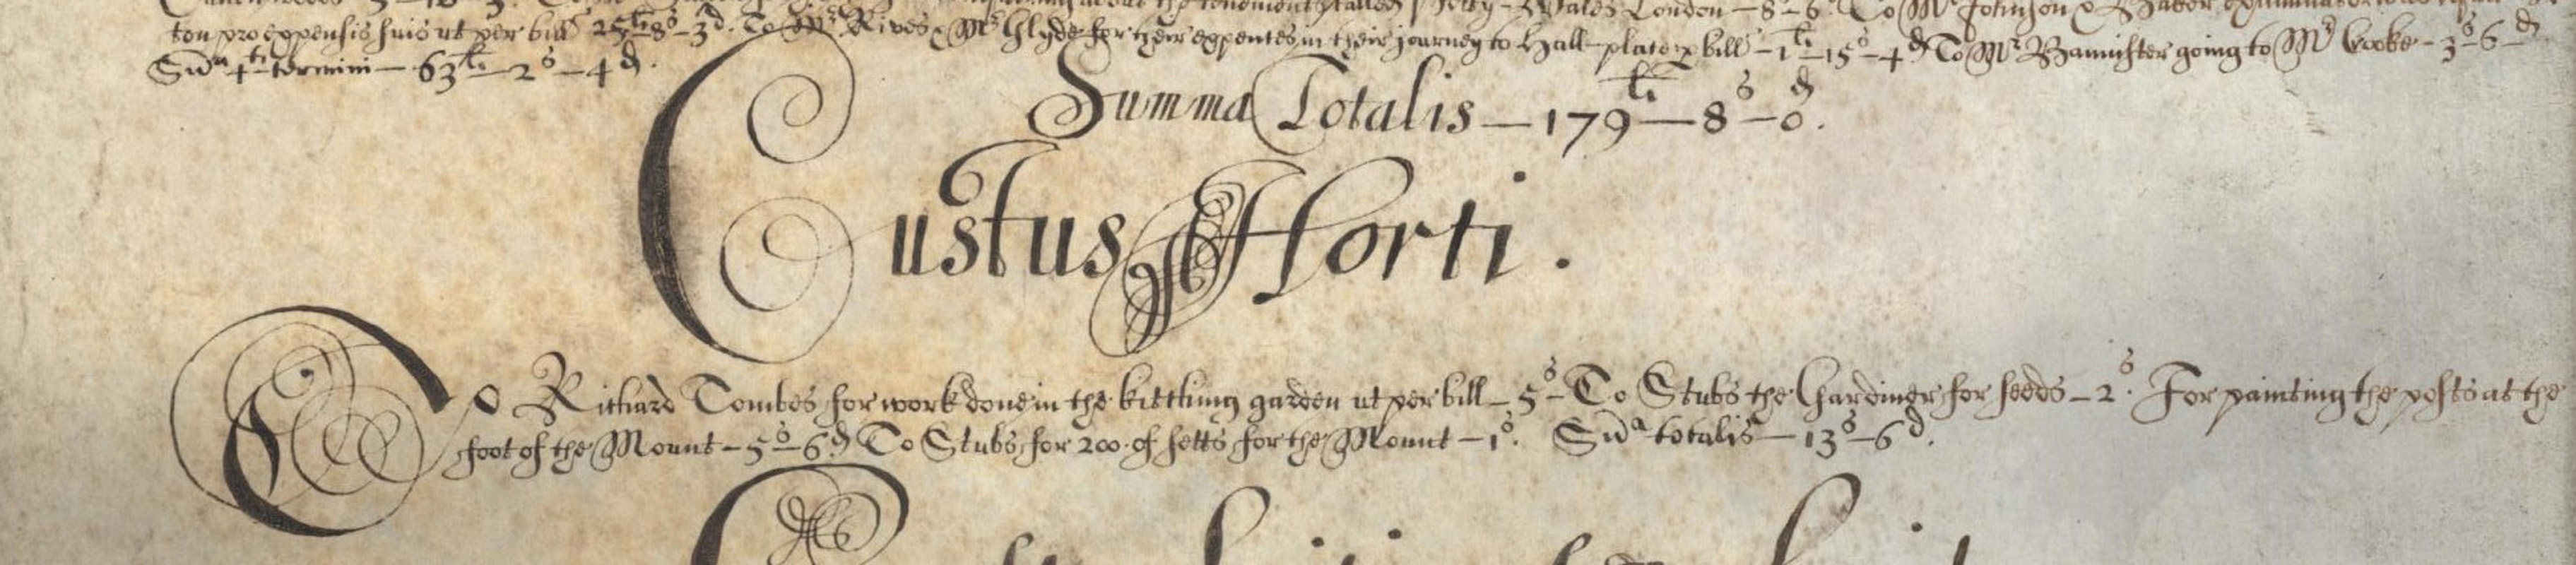 the tenement called London – 8s – 6d To Mr Johnson &
ton pro expensis suis ut per bill 25li – 8s – 3d. To Mr Rives & Mr Glyde for their expences in their journey to Hall-place p bill – 1li – 15s – 4d To Mr Bannister going to Mr Cooke – 3s – 6d
Sūa 4ti termini – 63li – 2s – 4d.
Summa Totalis – 179li – 8s – 0d.
Custus Horti.
To Richard Tombes for work done in the kittling garden ut per bill – 5s – To Stubs the Gardiner for seeds – 2s. For painting the posts at the
foot of the Mount – 5s – 6d To Stubs for 200 of setts for the Mount – 1s. Sūa totalis – 13s – 6d.